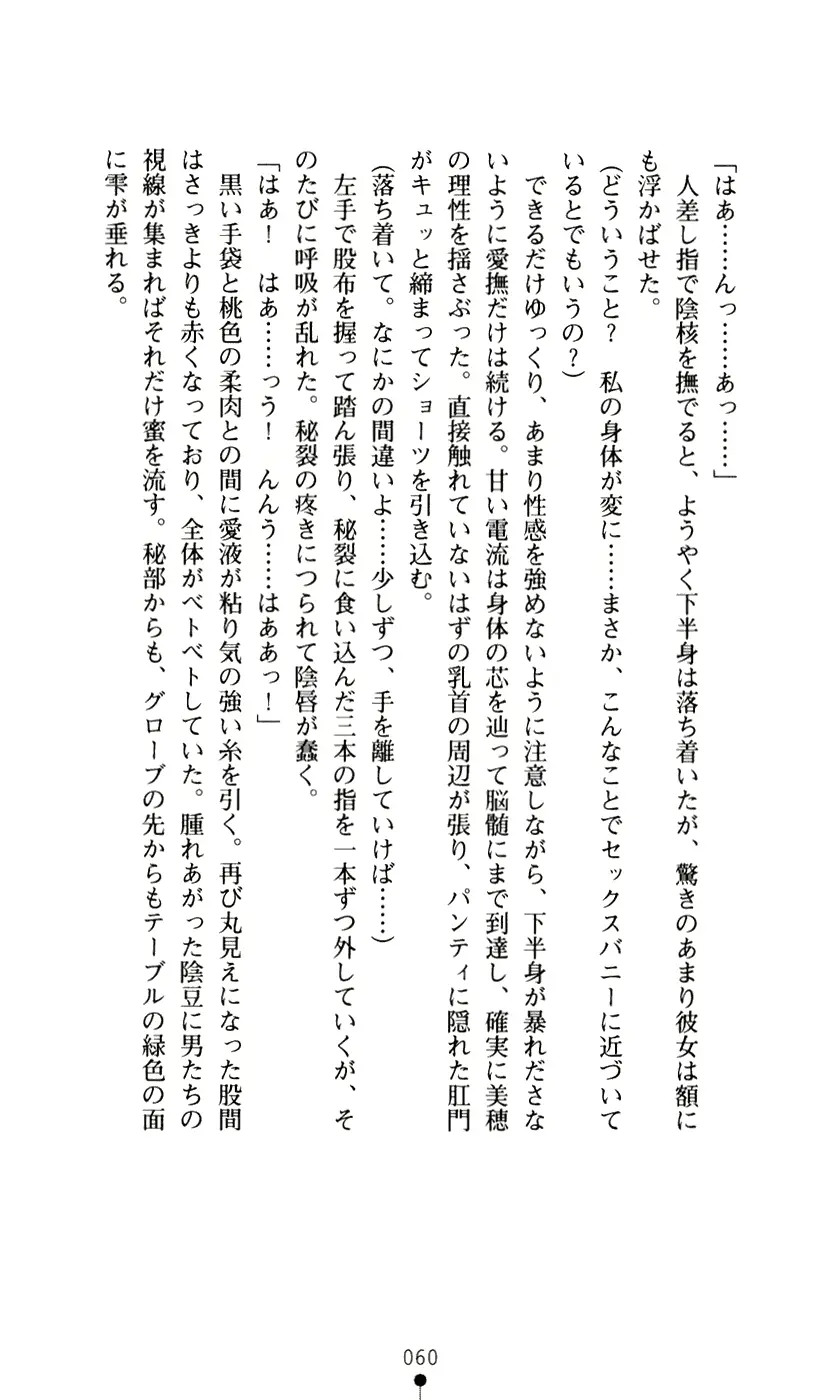 「はあ……んっ……あっ……」
　人差し指で陰核を撫でると、ようやく下半身は落ち着いたが、驚きのあまり彼女は額に
も浮かばせた。
（どういうこと？　私の身体が変に……まさか、こんなことでセックスバニーに近づいて
いるとでもいうの？）
　できるだけゆっくり、あまり性感を強めないように注意しながら、下半身が暴れださな
いように愛撫だけは続ける。甘い電流は身体の芯を辿って脳髄にまで到達し、確実に美穂
の理性を揺さぶった。直接触れていないはずの乳首の周辺が張り、パンティに隠れた肛門
がキュッと締まってショーツを引き込む。
（落ち着いて。なにかの間違いよ……少しずつ、手を離していけば……）
　左手で股布を握って踏ん張り、秘裂に食い込んだ三本の指を一本ずつ外していくが、そ
のたびに呼吸が乱れた。秘裂の疼きにつられて陰唇が蠢く。
「はぁ！　はぁ……っう！　んんぅ……はああっ！」
　黒い手袋と桃色の柔肉との間に愛液が粘り気の強い糸を引く。再び丸見えになった股間
はさっきよりも赤くなっており、全体がベトベトしていた。腫れあがった陰豆に男たちの
視線が集まればそれだけ蜜を流す。秘部からも、グローブの先からもテーブルの緑色の面
に雫が垂れる。
060